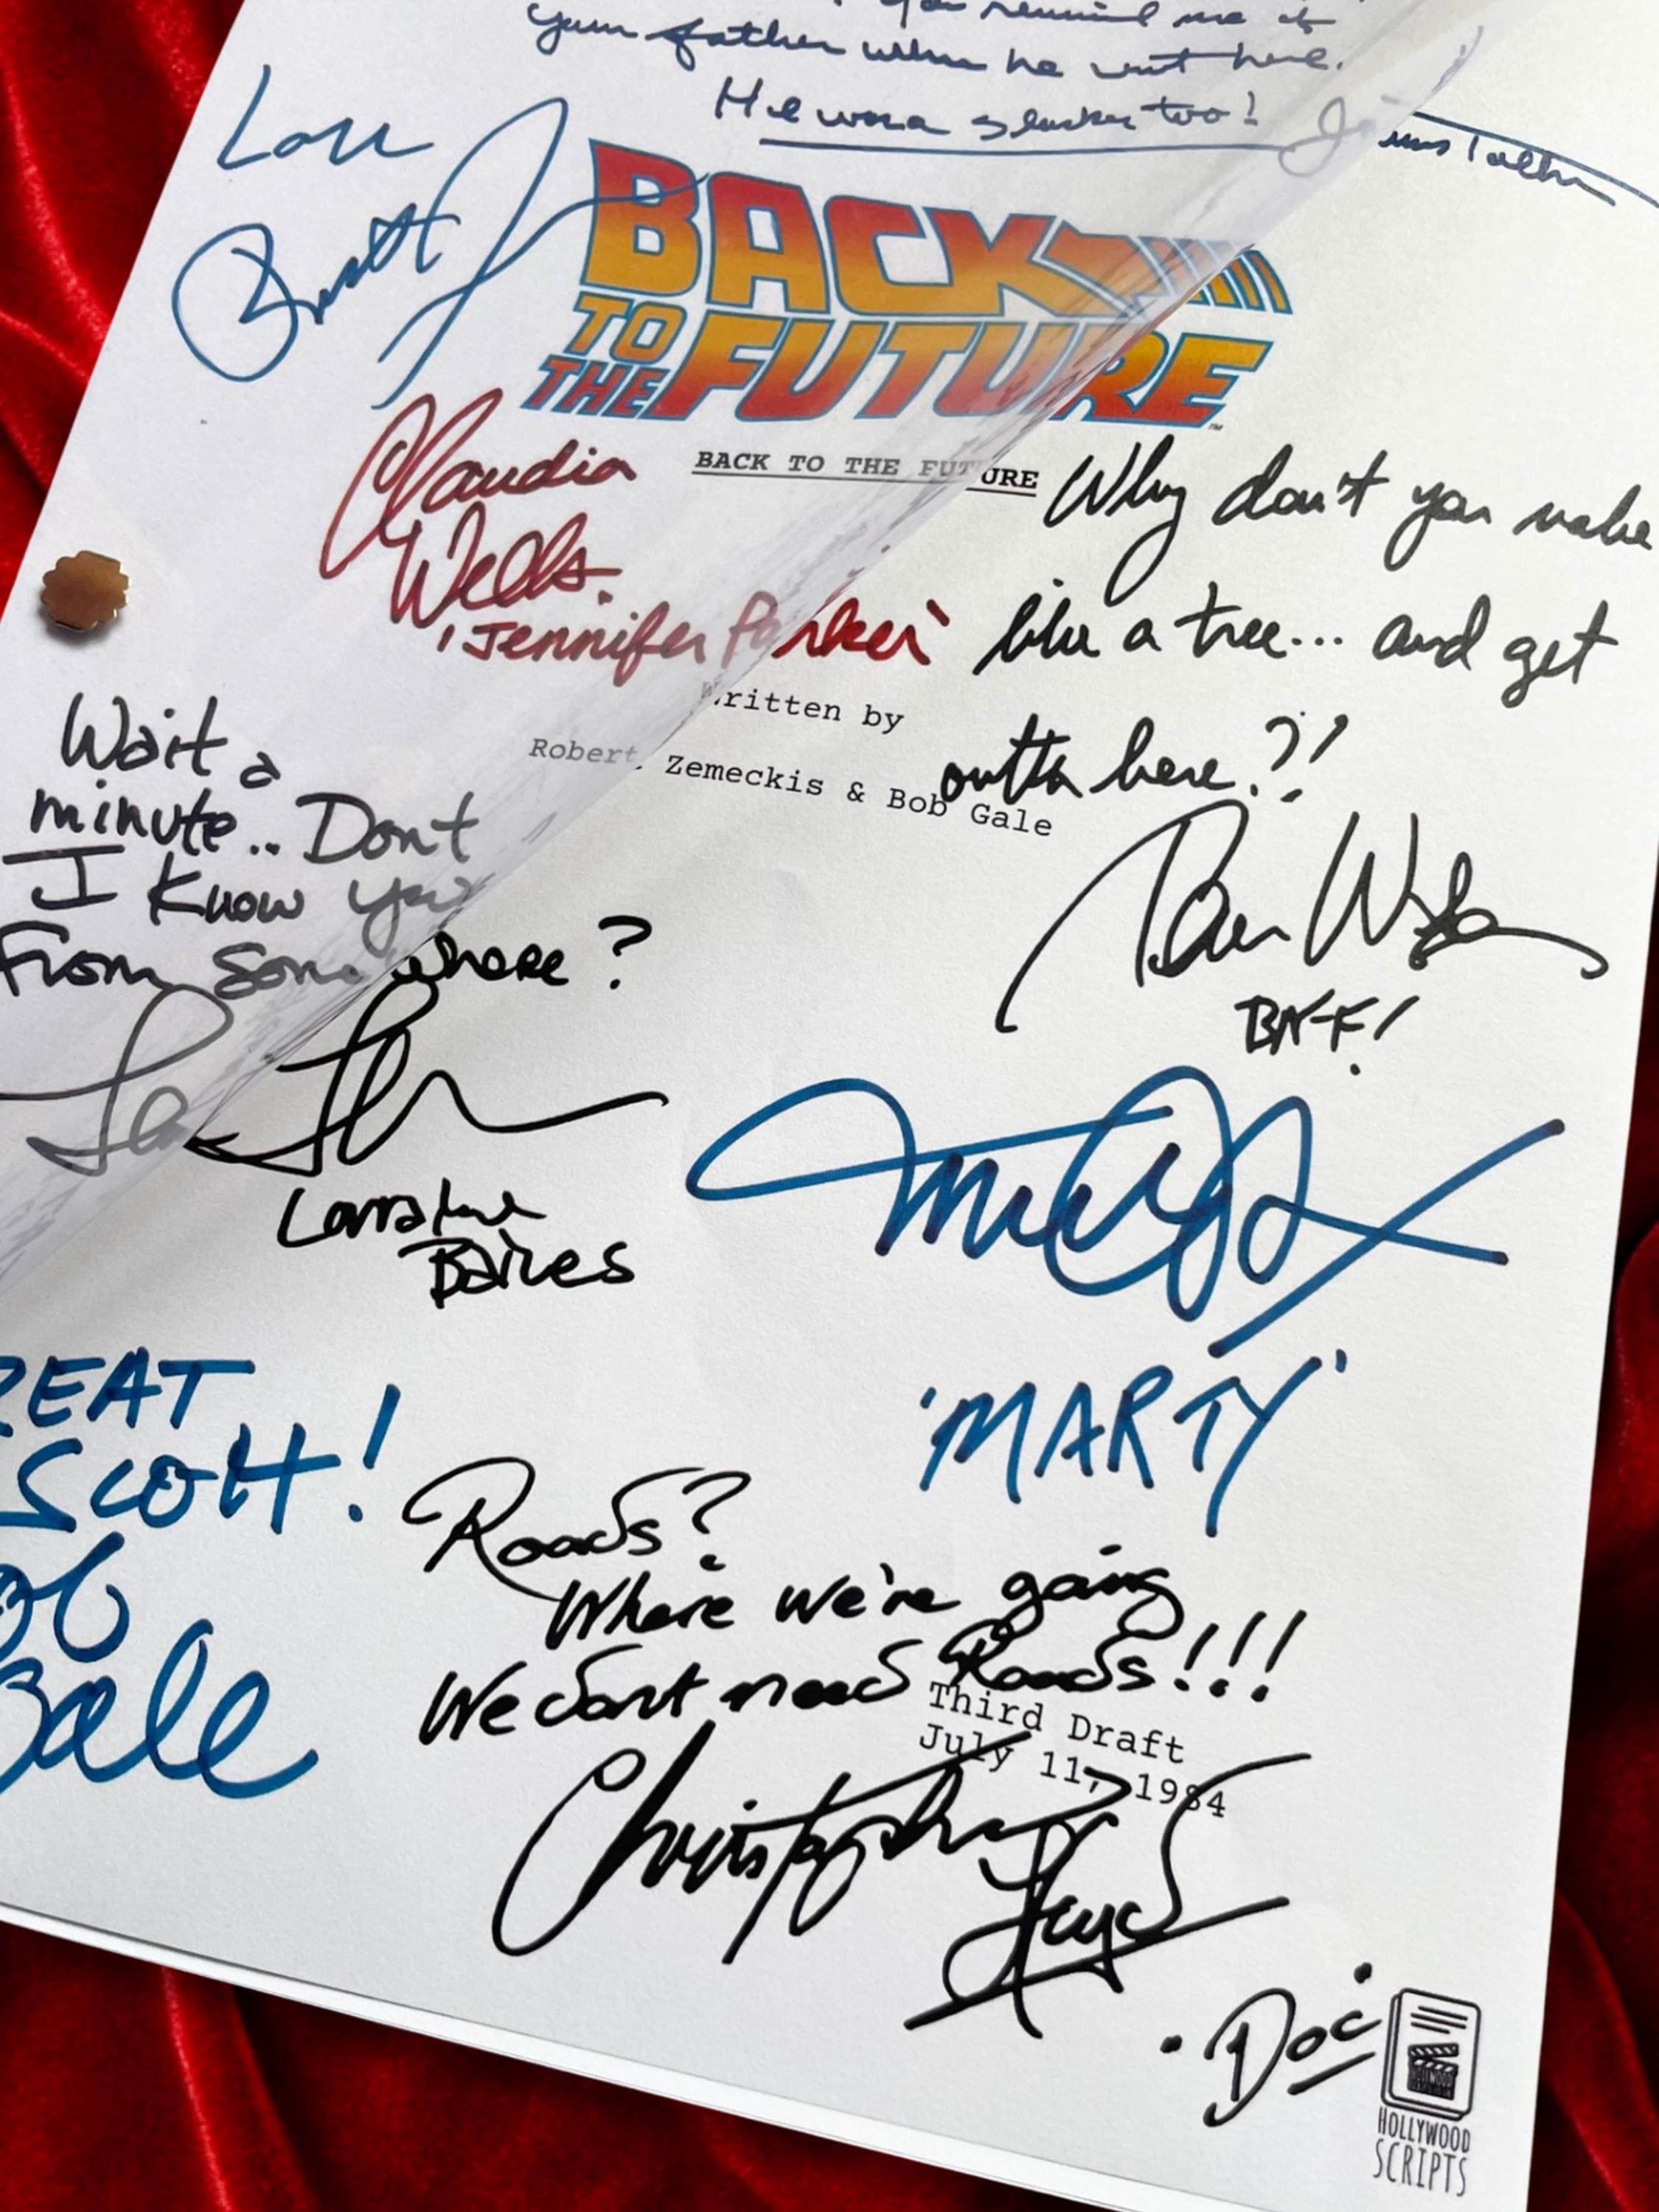 You remind me of
your father when he went here.
He was a slacker too!
James Tolkan
Lou
BACK
TO
THE FUTURE
™
Claudia
Wells.
'Jennifer Parker'
BACK TO THE FUTURE
Why don't you make
like a tree... and get
outta here?!
Written by
Robert Zemeckis & Bob Gale
BIFF!
Wait a
minute.. Dont
I Know you
From somewhere?
Lorraine
Baines
'MARTY'
REAT
SCOTT!
ob
Gale
Roads?
Where we're going
We dont need Roads!!!
Third Draft
July 11, 1984
Christopher
Lloyd
"Doc"
HOLLYWOOD
SCRIPTS